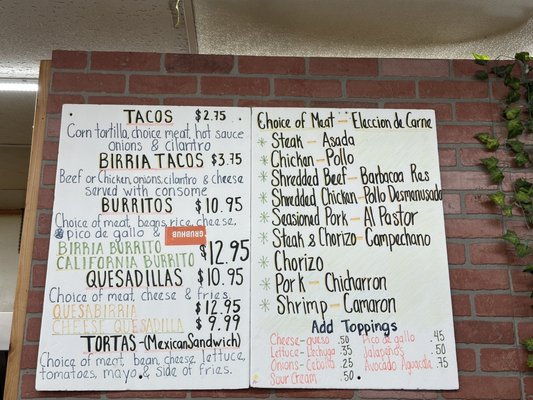 TACOS $2.75
Corn tortilla, choice meat, hot sauce
onions & cilantro
BIRRIA TACOS $3.75
Beef or Chicken, onions, cilantro & cheese
served with consome
BURRITOS $10.95
Choice of meat, beans, rice, cheese,
pico de gallo &
GRUBHUB
BIRRIA BURRITO
CALIFORNIA BURRITO $12.95
QUESADILLAS $10.95
Choice of meat, cheese & fries
QUESABIRRIA $12.95
CHEESE QUESADILLA $9.99
TORTAS-(Mexican Sandwich)
Choice of meat, bean, cheese, lettuce,
tomatoes, mayo & side of fries.
Choice of Meat - Elaccion de Carne
* Steak - Asada
* Chicken - Pollo
* Shredded Beef - Barbacoa Res
* Shredded Chicken - Pollo Desmanusado
* Seasoned Pork - Al Pastor
* Steak & Chorizo - Campechano
* Chorizo
* Pork - Chicharron
* Shrimp - Camaron
Add Toppings
Cheese - queso .50
Lettuce - Lechuga .35
Onions - Cebolla .25
Sour Cream .50
Pico de gallo .45
Jalapeños .50
Avocado Aguacate .75